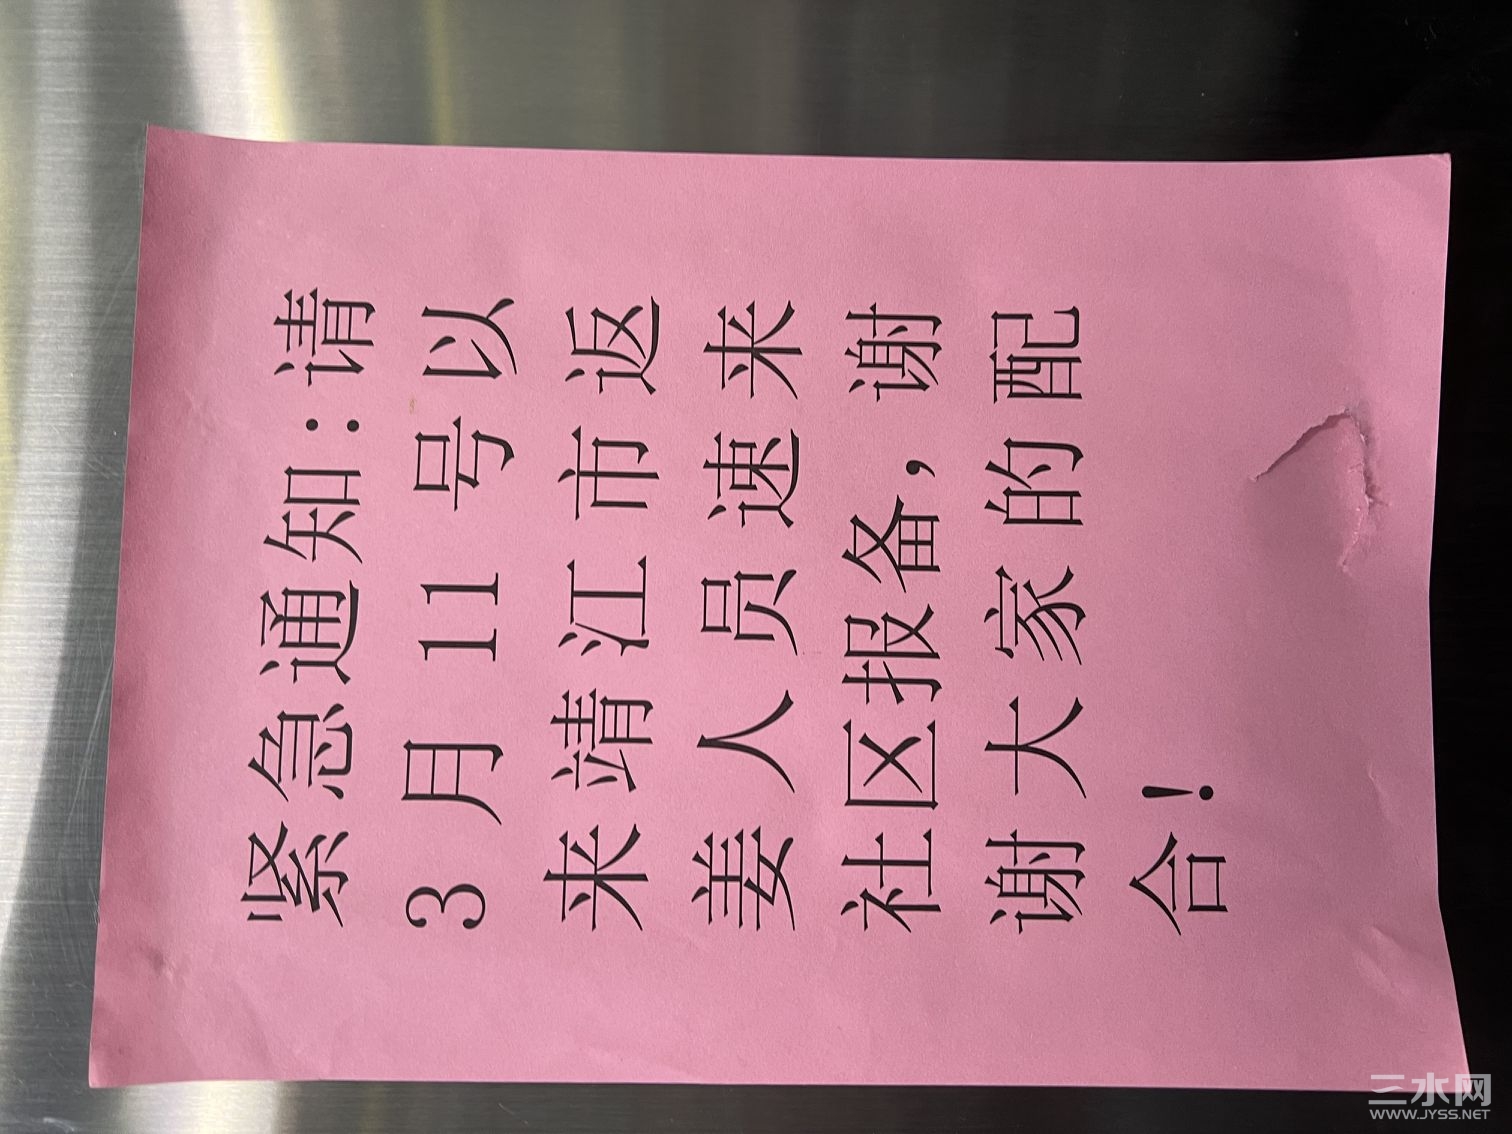 紧急通知:请
3月11号以
来靖江市返
姜人员速来
社区报备,谢
谢大家的配
合!
三水网
WWW.JYSS.NET